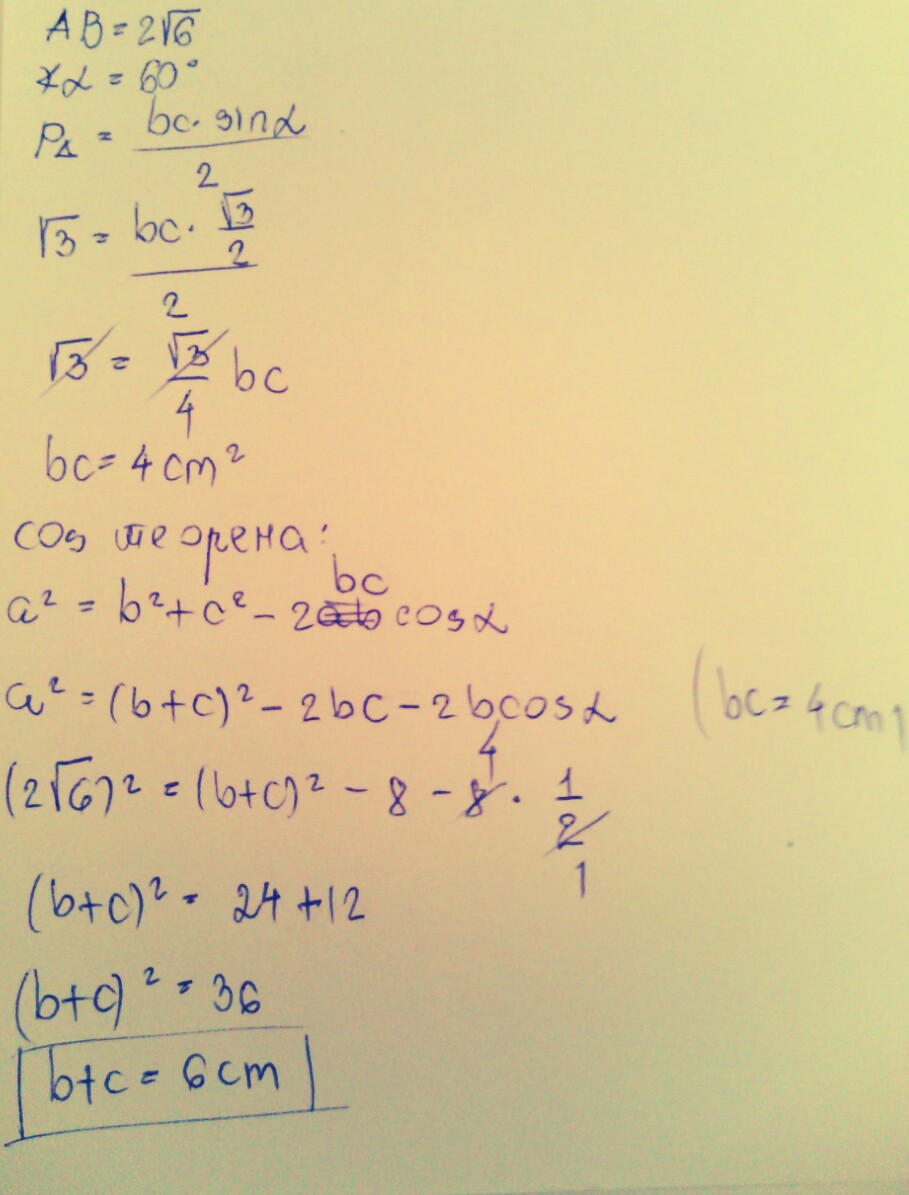 AB = 2√6
∡α = 60°
P△ = bc · sinα / 2
√3 = bc · √3/2 / 2
√3 = √3/4 bc
bc = 4 cm²
cos теорена:
a² = b² + c² - 2 ab bc cosα
a² = (b+c)² - 2bc - 2bcosα (bc = 4cm
(2√6)² = (b+c)² - 8 - 8 · 1/2 4 1
(b+c)² = 24 + 12
(b+c)² = 36
b+c = 6cm